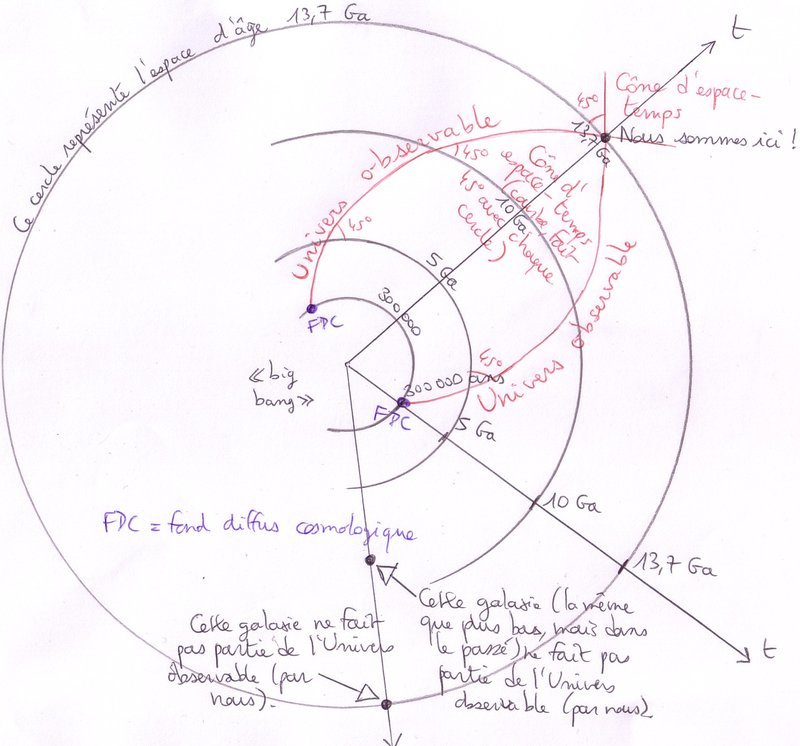 Ce cercle représente l'espace d'âge 13,7 Ga
t
45°
Cône d'espace-
temps
13,7 Ga
Nous sommes ici !
Univers observable
45°
45°
Cône d'
espace-temps
(cône fait
45° avec chaque
cercle)
10 Ga
5 Ga
300000
FDC
Univers observable
45°
« big
bang »
300 000 ans
FDC
5 Ga
10 Ga
13,7 Ga
t
FDC = fond diffus cosmologique
Cette galaxie ne fait
pas partie de l'Univers
observable (par
nous).
Cette galaxie (la même
que plus bas, mais dans
le passé) ne fait pas
partie de l'Univers
observable (par nous)